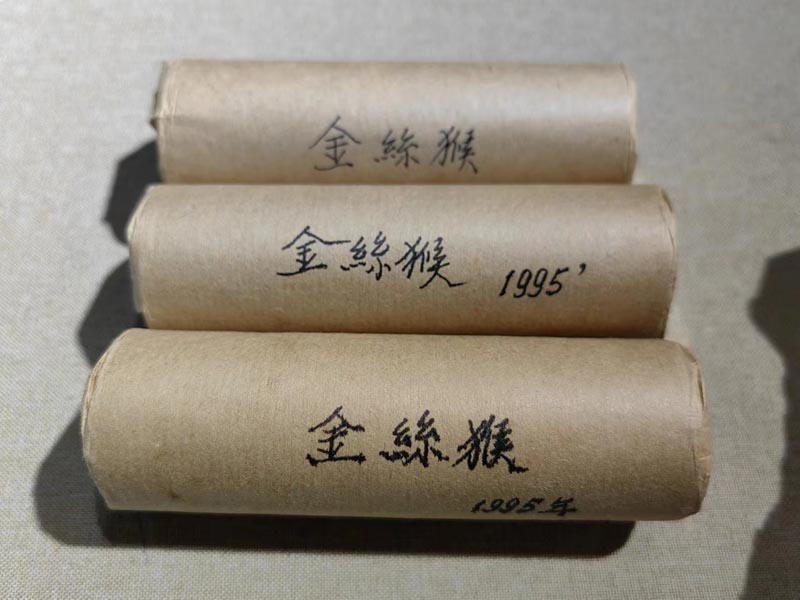 金絲猴
金絲猴 1995'
金絲猴
1995年